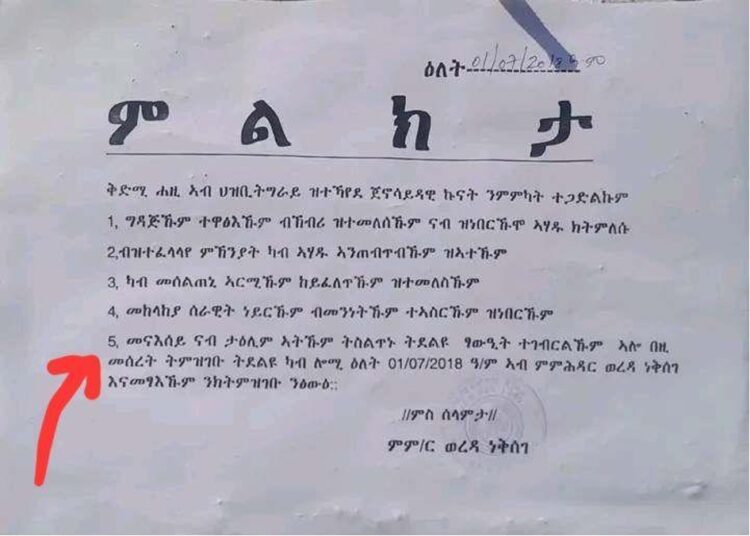 ዕለት 01/07/2018 ዓ.ም
ምልክታ
ቅድሚ ሐዚ ኣብ ህዝቢትግራይ ዝተኻየደ ጀኖሳይዳዊ ኲናት ንምምካት ተጋድልኩም
1, ግዳጅኹም ተዋፅእኹም ብኽብሪ ዝተመለሰኹም ናብ ዝነበርኹሞ ኣሃዱ ክትምለሱ
2,ብዝተፈላላየ ምኽንያት ካብ ኣሃዱ ኣንጠብጥብኹም ዝኣተኹም
3, ካብ መሰልጠኒ ኣርሚኹም ከይፈለጥኹም ዝተመለስኹም
4, መከላከያ ሰራዊት ነይርኹም ብመንነትኹም ተኣስርኹም ዝነበርኹም
5, መናእሰይ ናብ ታዕሊም ኣትኹም ትስልጥኑ ትደልዩ ፃውዒት ተገብርልኹም ኣሎ በዚ
መሰረት ትምዝገቡ ትደልዩ ካብ ሎሚ ዕለት 01/07/2018 ዓ/ም ኣብ ምምሕዳር ወረዳ ነቅሰገ
እናመፃእኹም ንክትምዝገቡ ንፅውዕ::
//ምስ ሰላምታ//
ምም/ር ወረዳ ነቅሰገ